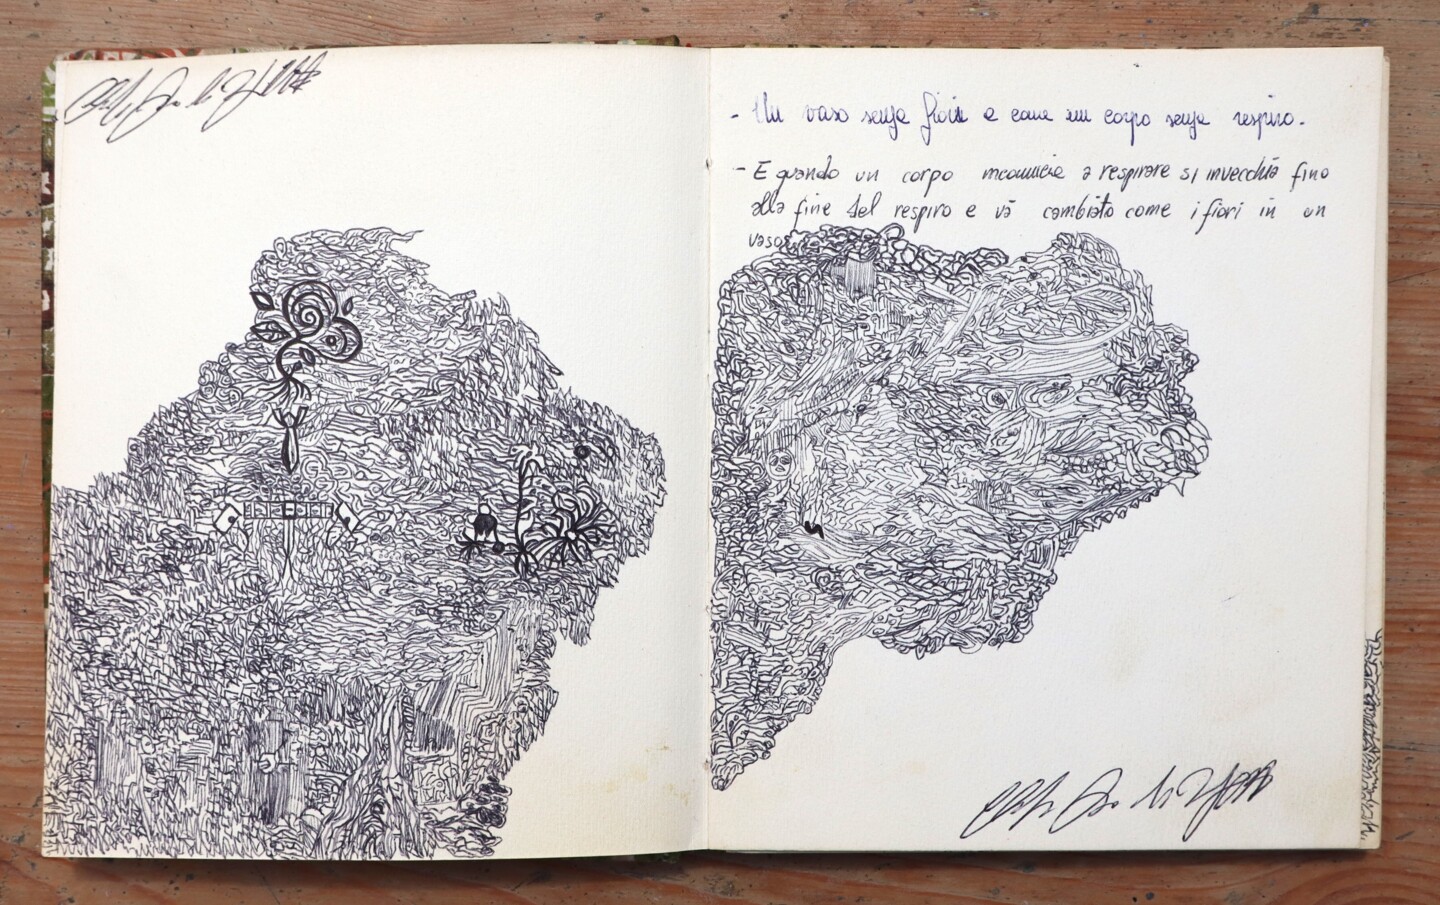 - Un vaso senza fiori e come un corpo senza respiro.
- E quando un corpo incomincia a respirare si invecchia fino
alla fine del respiro e và cambiato come i fiori in un
vaso